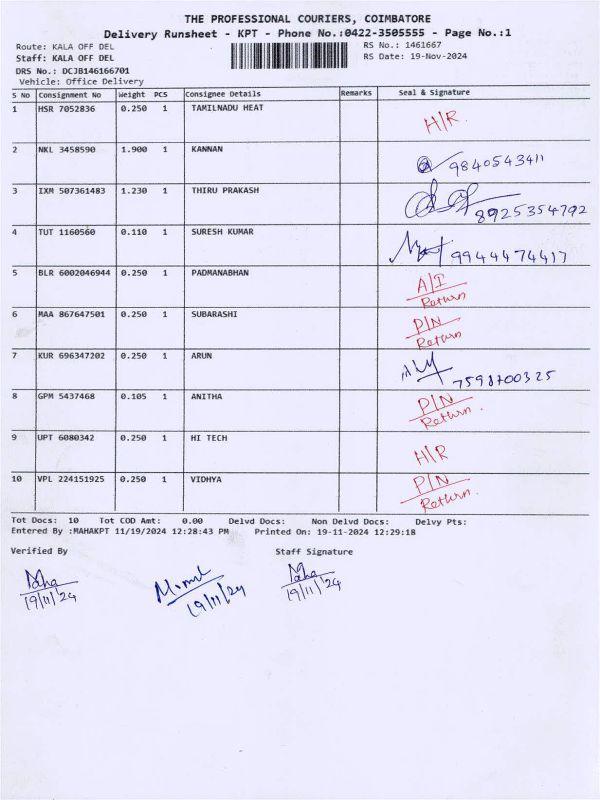 THE PROFESSIONAL COURIERS, COIMBATORE
Delivery Runsheet - KPT - Phone No.:0422-3505555 - Page No.:1
Route: KALA OFF DEL RS No.: 1461667
Staff: KALA OFF DEL RS Date: 19-Nov-2024
DRS No.: DCJB146166701
Vehicle: Office Delivery
S No Consignment No Weight PCS Consignee Details Remarks Seal & Signature
1 HSR 7052836 0.250 1 TAMILNADU HEAT H/R.
2 NKL 3458590 1.900 1 KANNAN 9840543411
3 IXM 507361483 1.230 1 THIRU PRAKASH 8925354792
4 TUT 1160560 0.110 1 SURESH KUMAR 9944474417
5 BLR 6002046944 0.250 1 PADMANABHAN A/I
Return
6 MAA 867647501 0.250 1 SUBARASHI P/N
Return
7 KUR 696347202 0.250 1 ARUN
8 GPM 5437468 0.105 1 ANITHA P/N
Return.
9 UPT 6080342 0.250 1 HI TECH H/R
10 VPL 224151925 0.250 1 VIDHYA P/N
Return.
Tot Docs: 10 Tot COD Amt: 0.00 Delvd Docs: Non Delvd Docs: Delvy Pts:
Entered By :MAHAKPT 11/19/2024 12:28:43 PM Printed On: 19-11-2024 12:29:18
Verified By Staff Signature
Maha Maha
19/11/24 19/11/24 19/11/24